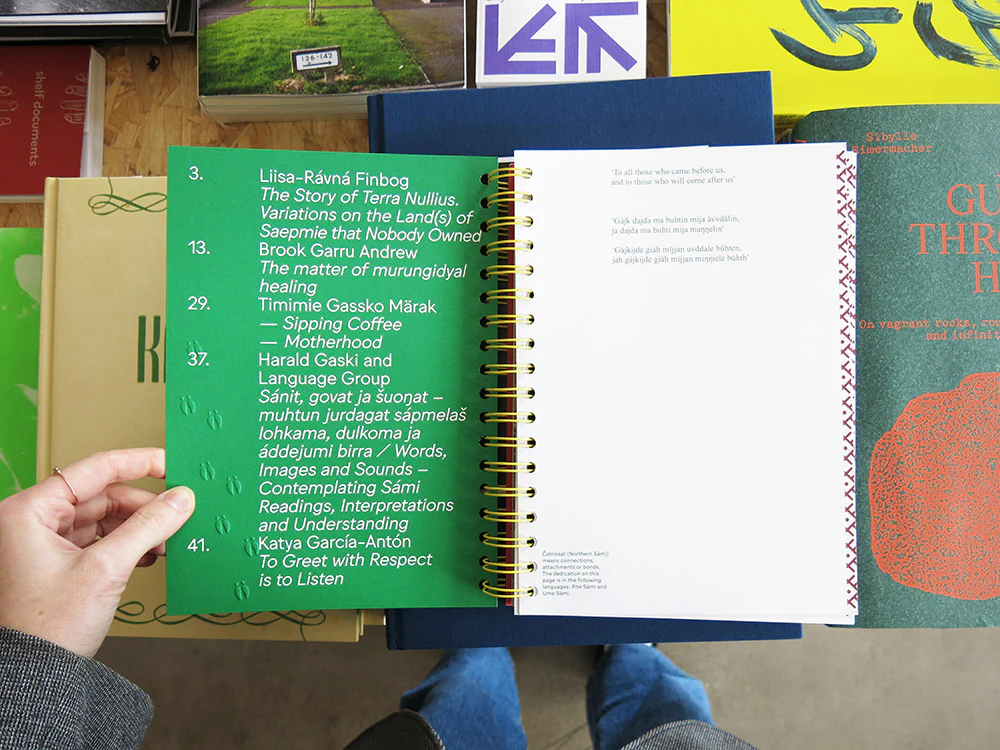 shelf documents
126-142
Sibylle
Eimermacher
GU
THR
H
On vagrant rocks,
and infinit
K
3.
Liisa-Rávná Finbog
The Story of Terra Nullius.
Variations on the Land(s) of
Saepmie that Nobody Owned
13.
Brook Garru Andrew
The matter of murungidyal
healing
29.
Timimie Gassko Märak
— Sipping Coffee
— Motherhood
37.
Harald Gaski and
Language Group
Sánit, govat ja šuoŋat –
muhtun jurdagat sápmelaš
lohkama, dulkoma ja
áddejumi birra / Words,
Images and Sounds –
Contemplating Sámi
Readings, Interpretations
and Understanding
41.
Katya García-Antón
To Greet with Respect
is to Listen
‘To all those who came before us,
and to those who will come after us’
‘Gájk dajda ma buhtin mija åvvdålin,
ja dajda ma buhti mija maŋŋelin’
‘Gájkijde giäh mijjan uvddale bühten,
jah gájkijde giäh mijjan miŋŋiele bühth’
Čatnosat (Northern Sámi)
means connections,
attachments or bonds.
The dedication on this
page is in the following
languages: Pite Sámi and
Ume Sámi.